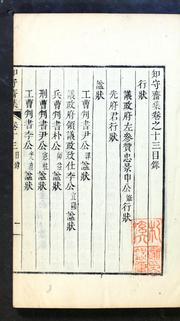 知守齋集卷之十三目錄
行狀
議政府左參贊忠景申公行狀
先府君行狀
諡狀
工曹判書尹公諡狀
議政府領議政致仕李公諡狀
兵曹判書朴公諡狀
刑曹判書李公諡狀
工曹判書李公諡狀
知守齋集
卷十三目錄